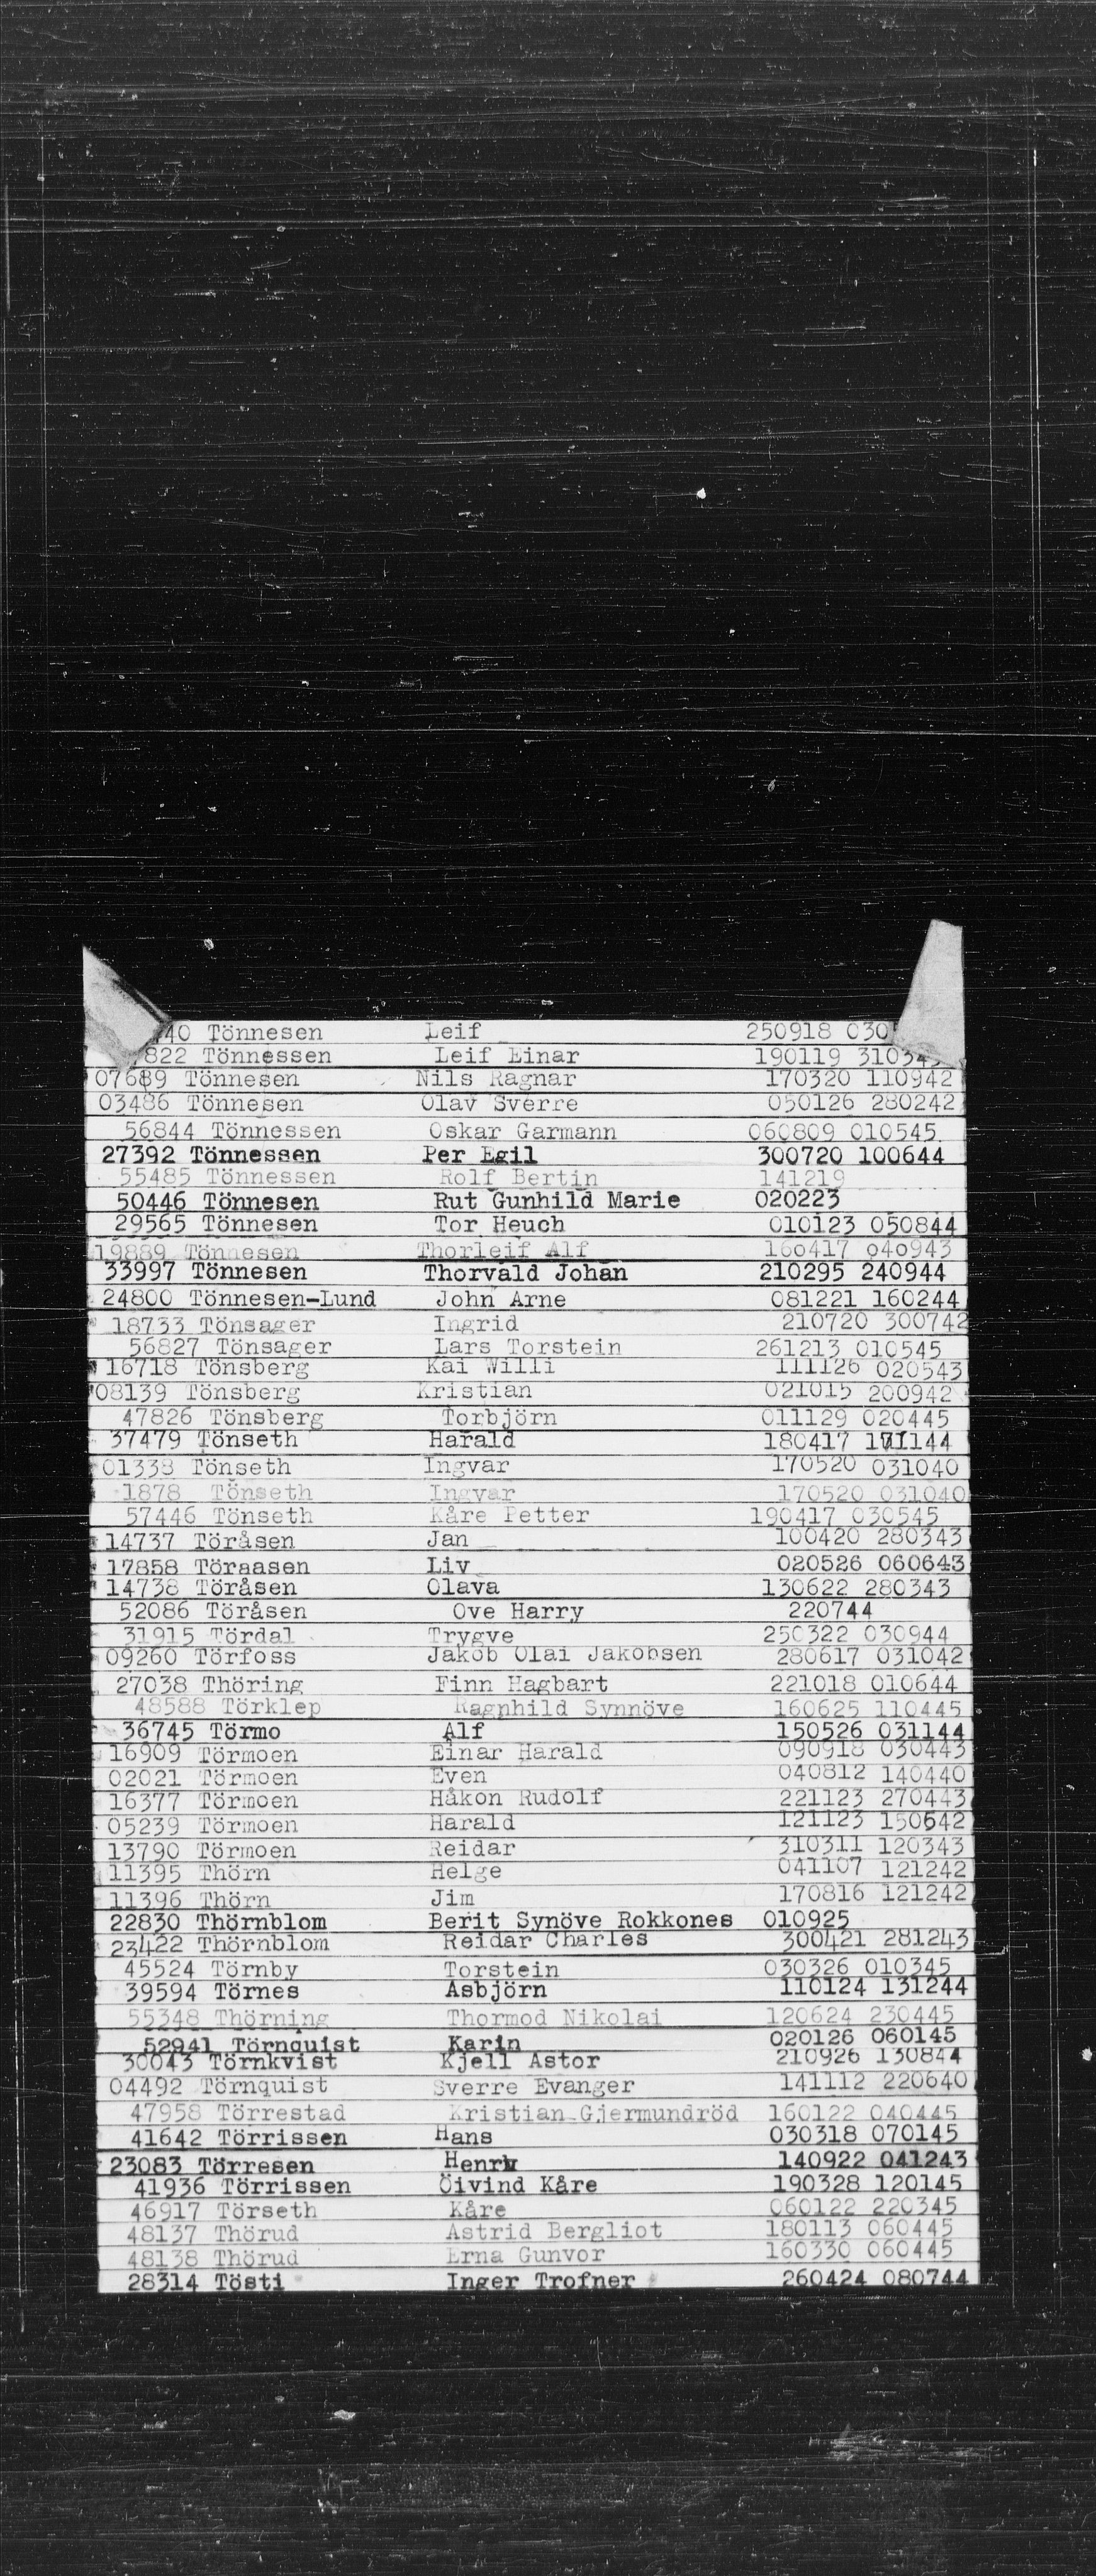 40 Tönnesen Leif 250918 030
822 Tönnessen Leif Einar 190119
07689 Tönnesen Nils Ragnar 170320 110942
03486 Tönnesen Olav Sverre 050126 280242
56844 Tönnessen Oskar Garmann 060809 010545
27392 Tönnessen Per Egil 300720 100644
55485 Tönnessen Rolf Bertin 141219
50446 Tönnesen Rut Gunhild Marie 020223
29565 Tönnesen Tor Heuch 010123 050844
19889 Tönnesen Thorleif Alf 160417 040943
33997 Tönnesen Thorvald Johan 210295 240944
24800 Tönnesen-Lund John Arne 081221 160244
18733 Tönsager Ingrid 210720 300742
56827 Tönsager Lars Torstein 261213 010545
16718 Tönsberg Kai Willi 111126 020543
08139 Tönsberg Kristian 021015 200942
47826 Tönsberg Torbjörn 011129 020445
37479 Tönseth Harald 180417 171144
01338 Tönseth Ingvar 170520 031040
1878 Tönseth Ingvar 170520 031040
57446 Tönseth Kåre Petter 190417 030545
14737 Töråsen Jan 100420 280343
17858 Töraasen Liv 020526 060643
14738 Töråsen Olava 130622 280343
52086 Töråsen Ove Harry 220744
31915 Tördal Trygve 250322 030944
09260 Törfoss Jakob Olai Jakobsen 280617 031042
27038 Thöring Finn Hagbart 221018 010644
48588 Törklep Ragnhild Synnöve 160625 110445
36745 Törmo Alf 150526 031144
16909 Törmoen Einar Harald 090918 030443
02021 Törmoen Even 040812 140440
16377 Törmoen Håkon Rudolf 221123 270443
05239 Törmoen Harald 121123 150642
13790 Törmoen Reidar 310311 120343
11395 Thörn Helge 041107 121242
11396 Thörn Jim 170816 121242
22830 Thörnblom Berit Synöve Rokkones 010925
23422 Thörnblom Reidar Charles 300421 281243
45524 Törnby Torstein 030326 010345
39594 Törnes Asbjörn 110124 131244
55348 Thörning Thormod Nikolai 120624 230445
52941 Törnquist Karin 020126 060145
30043 Törnkvist Kjell Astor 210926 130844
04492 Törnquist Sverre Evanger 141112 220640
47958 Törrestad Kristian Gjermundröd 160122 040445
41642 Törrissen Hans 030318 070145
23083 Törresen Henrk 140922 041243
41936 Törrissen Öivind Kåre 190328 120145
46917 Törseth Kåre 060122 220345
48137 Thörud Astrid Bergliot 180113 060445
48138 Thörud Erna Gunvor 160330 060445
28314 Tösti Inger Trofner 260424 080744